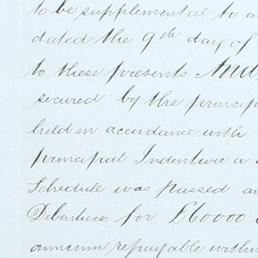 to be supplemental to an
dated the 9th day of
to these presents And
secured by the princip
held in accordance with
principal Indenture a
Schedule was passed a
Debentures for £60000
annum repayable with